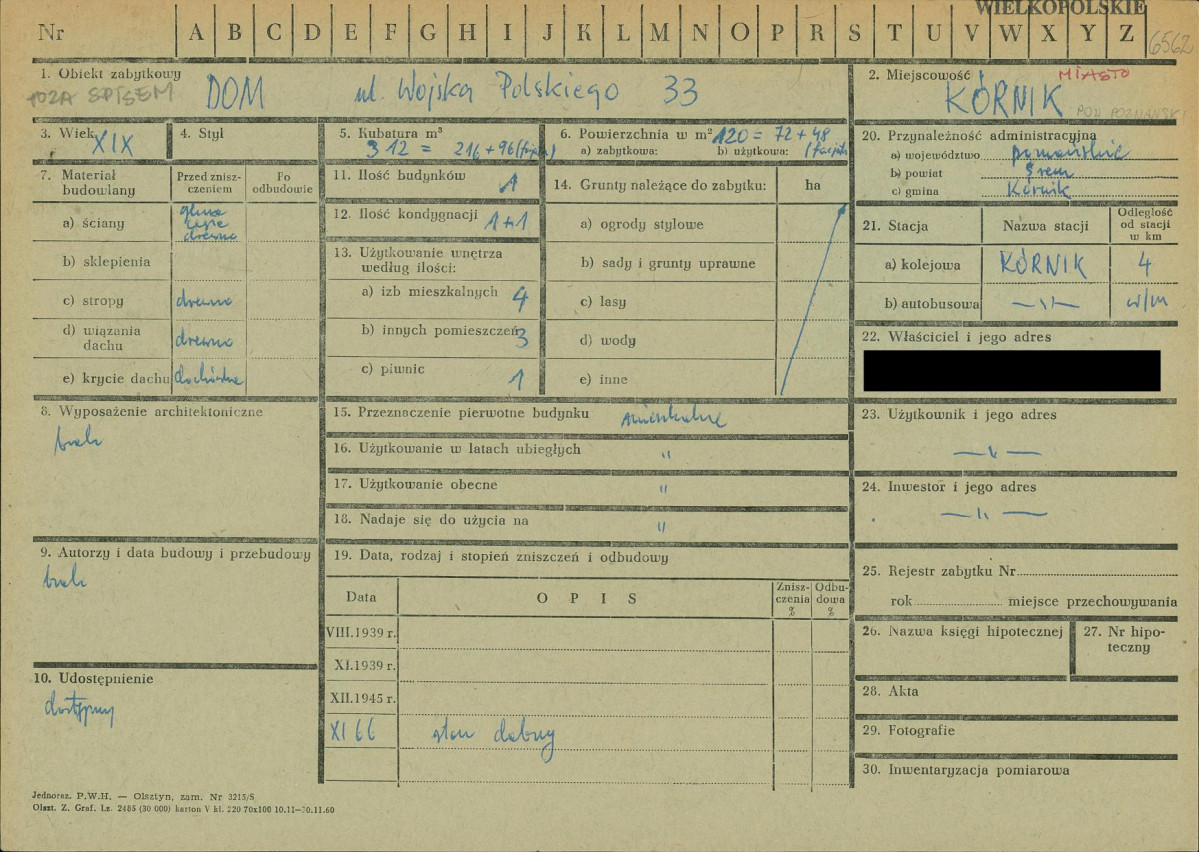 WIELKOPOLSKIE
Nr A B C D E F G H I J K L M N O P R S T U V W X Y Z 6562
1. Obiekt zabytkowy
POZA SPISEM
DOM ul. Wojska Polskiego 33
2. Miejscowość MIASTO
KÓRNIK
POW. POZNAŃSKI
3. Wiek XIX
4. Styl
5. Kubatura m³
312 = 216 + 96
6. Powierzchnia w m² 120 = 72 + 48
a) zabytkowa: b) użytkowa:
20. Przynależność administracyjna
a) województwo poznańskie
b) powiat Śrem
c) gmina Kórnik
7. Materiał budowlany
Przed znisz-
czeniem
Po
odbudowie
a) ściany glina
drewno
b) sklepienia
c) stropy drewno
d) wiązania
dachu drewno
e) krycie dachu dachówka
11. Ilość budynków 1
12. Ilość kondygnacji 1+1
13. Użytkowanie wnętrza
według ilości:
a) izb mieszkalnych 4
b) innych pomieszczeń 3
c) piwnic 1
14. Grunty należące do zabytku: ha
a) ogrody stylowe
b) sady i grunty uprawne
c) lasy
d) wody
e) inne
21. Stacja Nazwa stacji
Odległość
od stacji
w km
a) kolejowa KÓRNIK 4
b) autobusowa —"— w/m
22. Właściciel i jego adres
8. Wyposażenie architektoniczne
brak
15. Przeznaczenie pierwotne budynku mieszkalne
16. Użytkowanie w latach ubiegłych "
17. Użytkowanie obecne "
18. Nadaje się do użycia na "
23. Użytkownik i jego adres
—"—
24. Inwestor i jego adres
—"—
9. Autorzy i data budowy i przebudowy
brak
19. Data, rodzaj i stopień zniszczeń i odbudowy
Data OPIS
Znisz-
czenia
%
Odbu-
dowa
%
VIII.1939 r.
XI.1939 r.
XII.1945 r.
XI 66 stan dobry
25. Rejestr zabytku Nr
rok miejsce przechowywania
26. Nazwa księgi hipotecznej
27. Nr hipo-
teczny
10. Udostępnienie
dostępny
28. Akta
29. Fotografie
30. Inwentaryzacja pomiarowa
Jednoraz. P.W.H. — Olsztyn, zam. Nr 3215/S
Olszt. Z. Graf. Lz. 2485 (30 000) karton V kl. 220 70x100 10.11—30.11.60